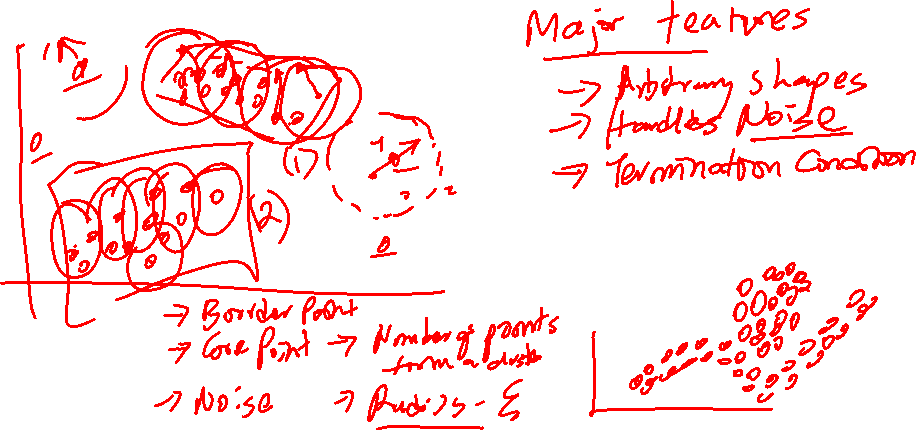 Major features
→ Arbitrary shapes
→ Handles Noise
→ Termination Condition
(1)
2)
→ Border Point
→ Core Point → Number of points
from a cluster
→ Noise → Radius - ε